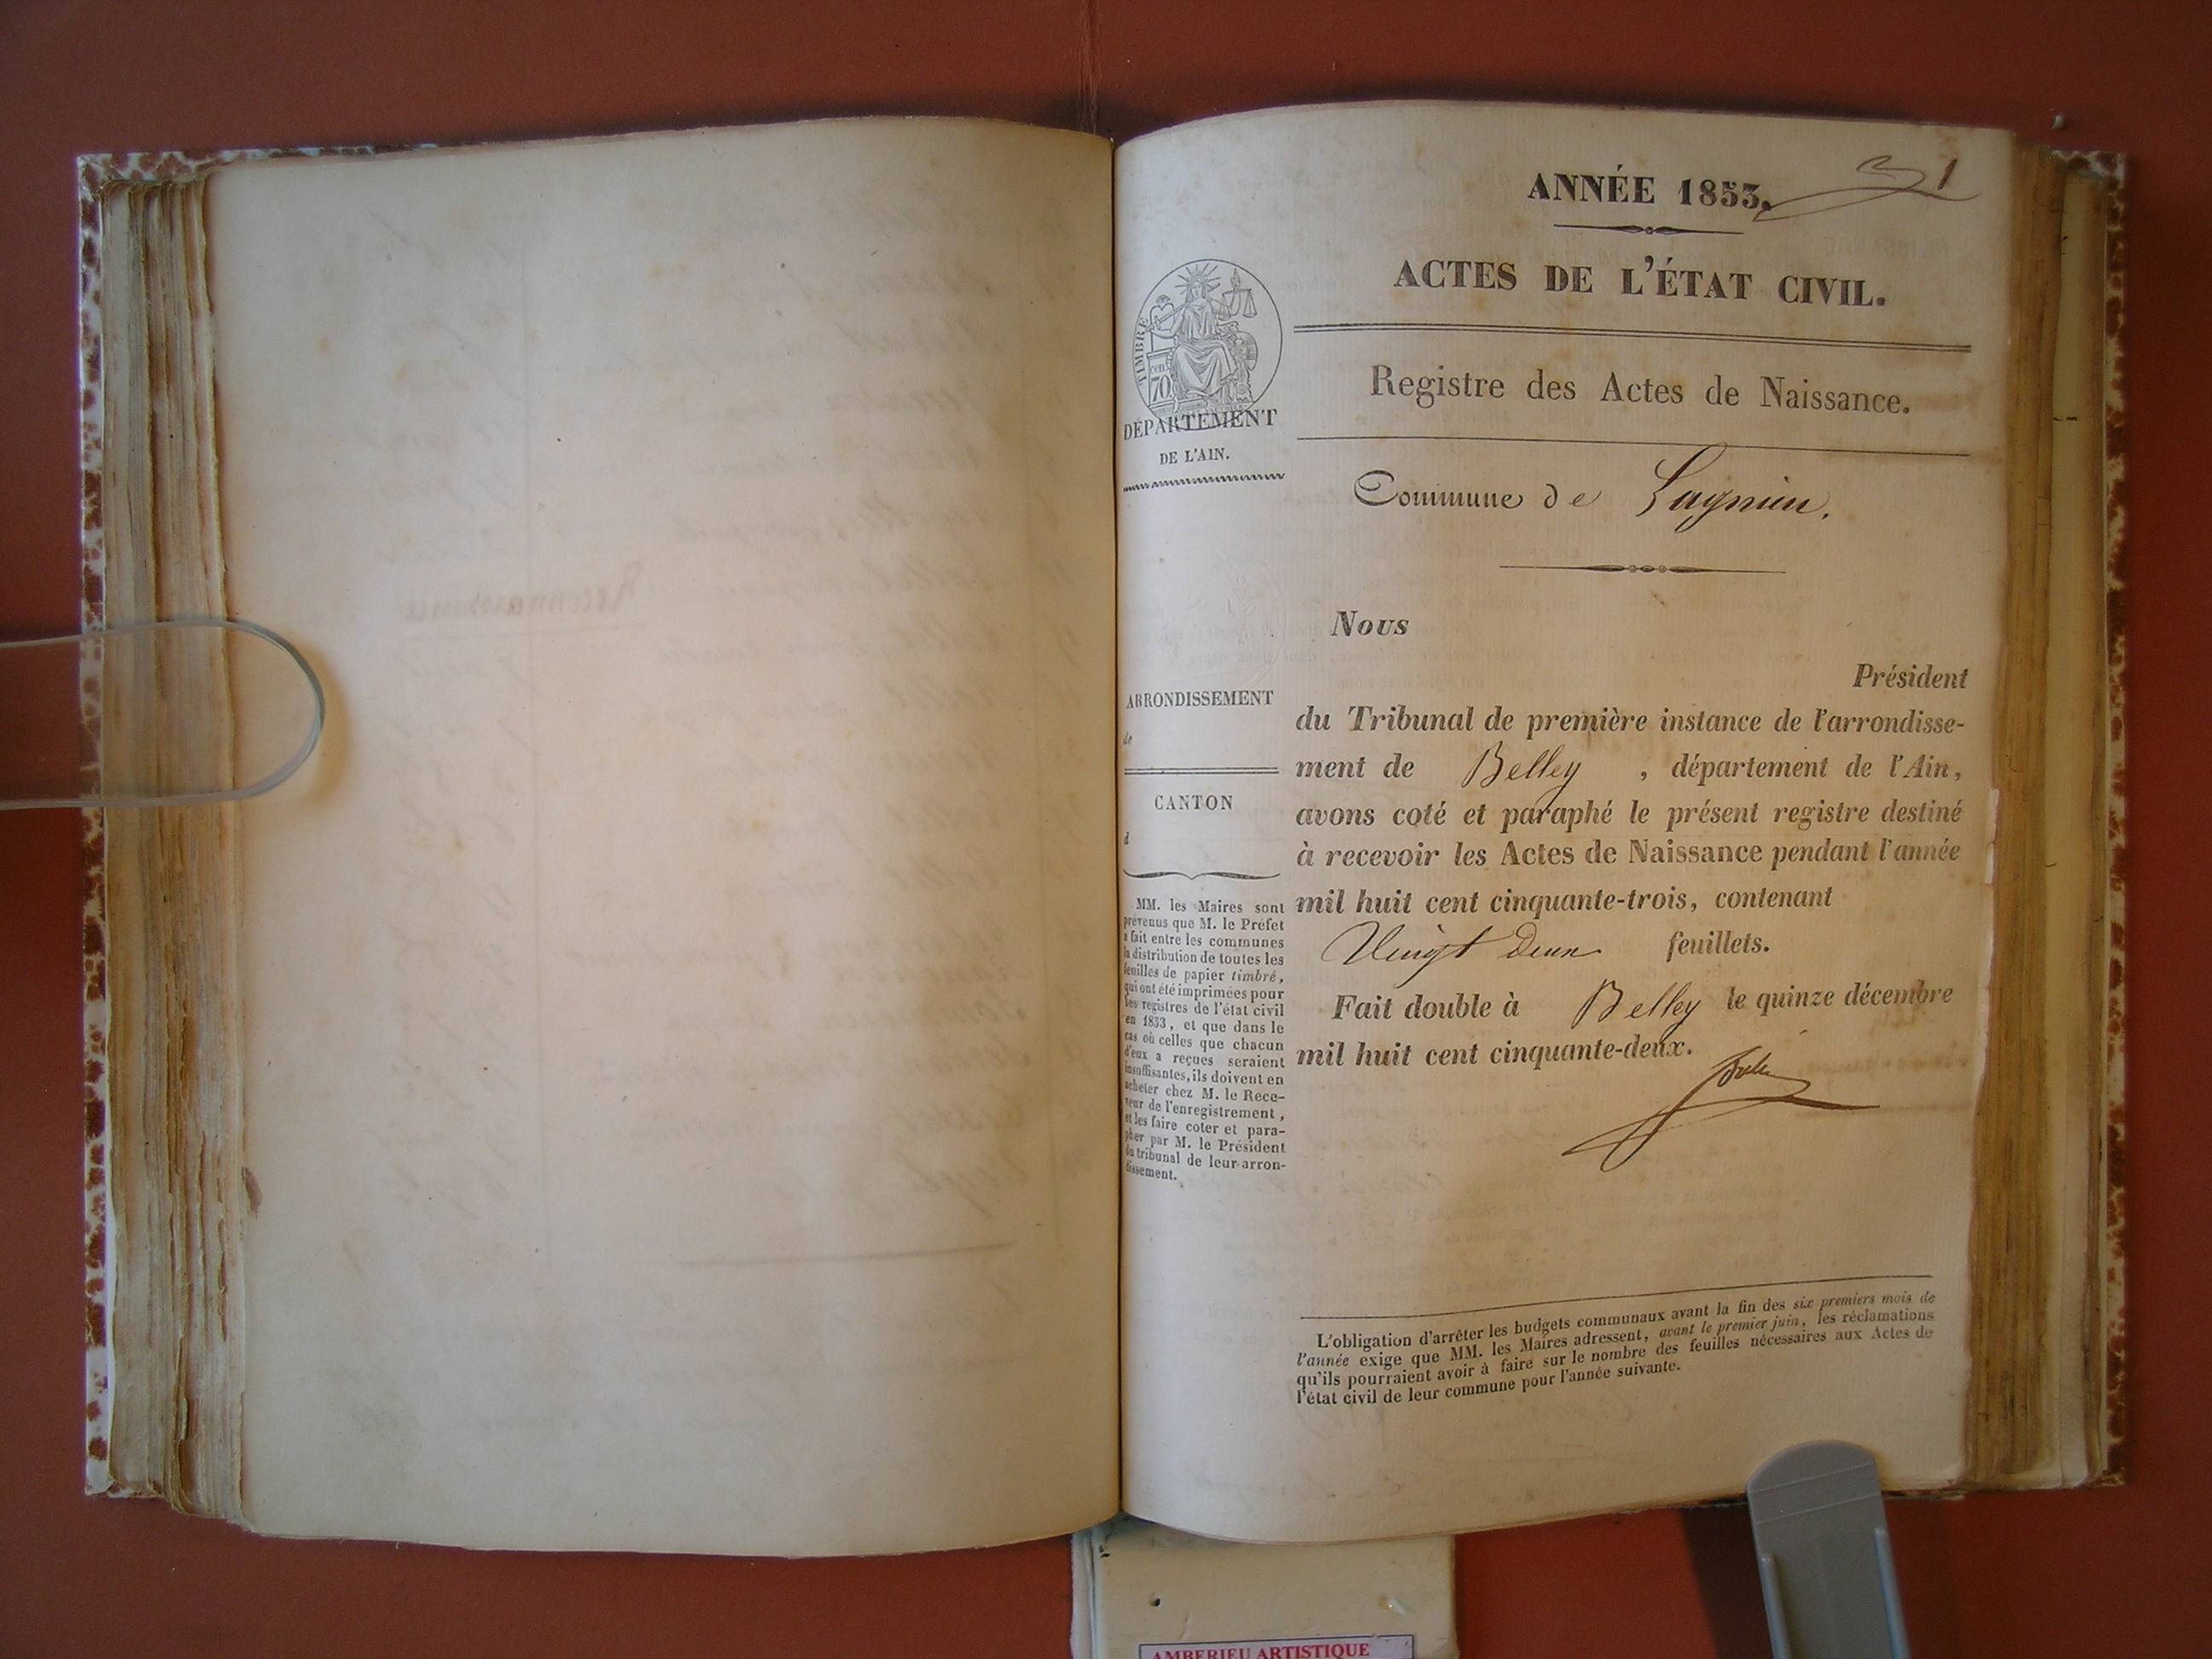 ANNÉE 1853.
1
ACTES DE L'ÉTAT CIVIL.
Registre des Actes de Naissance.
TIMBRE
70
cent
DÉPARTEMENT
DE L'AIN.
Commune de Lagnieu.
Nous
Président
du Tribunal de première instance de l'arrondisse-
ment de Belley , département de l'Ain,
avons coté et paraphé le présent registre destiné
à recevoir les Actes de Naissance pendant l'année
mil huit cent cinquante-trois, contenant
Vingt deux feuillets.
Fait double à Belley le quinze décembre
mil huit cent cinquante-deux.
ARRONDISSEMENT
de
CANTON
d
MM. les Maires sont
prévenus que M. le Préfet
a fait entre les communes
la distribution de toutes les
feuilles de papier timbré,
qui ont été imprimées pour
les registres de l'état civil
en 1853, et que dans le
cas où celles que chacun
d'eux a reçues seraient
insuffisantes, ils doivent en
acheter chez M. le Rece-
veur de l'enregistrement,
et les faire coter et para-
pher par M. le Président
du tribunal de leur arron-
dissement.
L'obligation d'arrêter les budgets communaux avant la fin des six premiers mois de
l'année exige que MM. les Maires adressent, avant le premier juin, les réclamations
qu'ils pourraient avoir à faire sur le nombre des feuilles nécessaires aux Actes de
l'état civil de leur commune pour l'année suivante.
AMBERIEU ARTISTIQUE